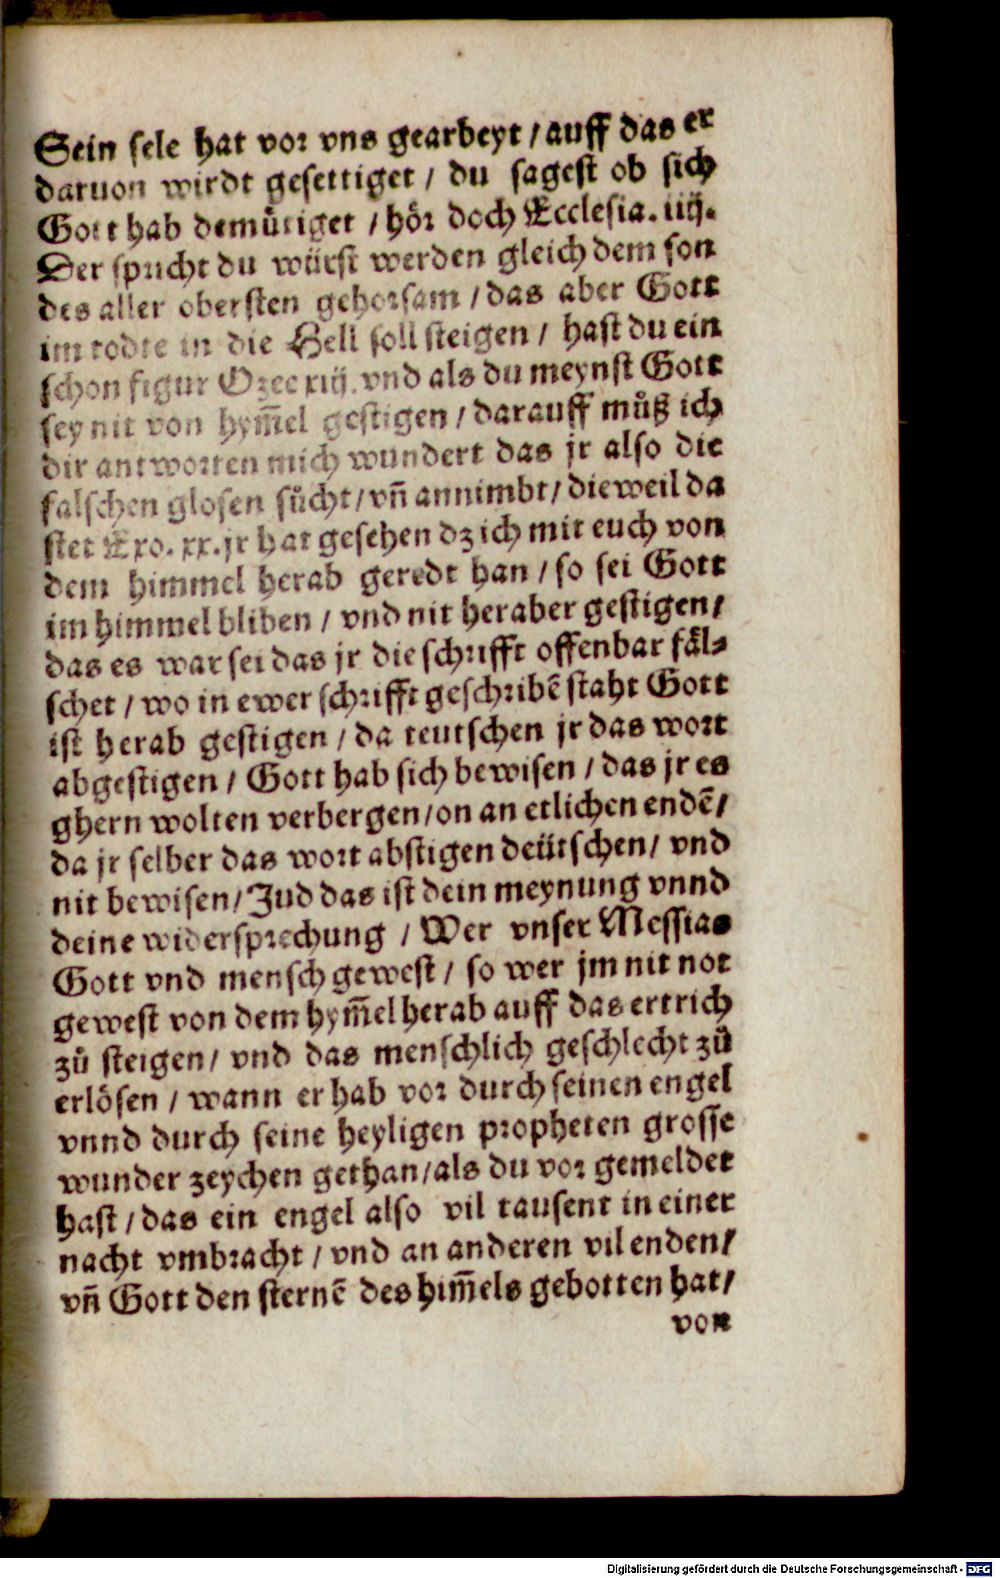 Sein sele hat vor vns gearbeyt / auff das er
daruon wirdt gesettiget / du sagest ob sich
Gott hab demuͤtiget / hoͤr doch Ecclesia. iiij.
Der spricht du wuͤrst werden gleich dem son
des aller obersten gehorsam / das aber Gott
im todte in die Hell soll steigen / hast du ein
schon figur Ozee xiij. vnd als du meynst Gott
sey nit von hym̃el gestigen / darauff muͦß ich
dir antworten mich wundert das jr also die
falschen glosen suͦcht / vñ annimbt / dieweil da
stet Exo. xx. jr hat gesehen dz ich mit euch von
dem himmel herab geredt han / so sei Gott
im himmel bliben / vnd nit heraber gestigen /
das es war sei das jr die schrifft offenbar faͤl⸗
schet / wo in ewer schrifft geschribẽ staht Gott
ist herab gestigen / da teutschen jr das wort
abgestigen / Gott hab sich bewisen / das jr es
ghern wolten verbergen / on an etlichen endẽ /
da jr selber das wort abstigen deütschen / vnd
nit bewisen / Jud das ist dein meynung vnnd
deine widersprechung / Wer vnser Messias
Gott vnd mensch gewest / so wer jm nit not
gewest von dem hym̃el herab auff das ertrich
zuͦ steigen / vnd das menschlich geschlecht zuͦ
erlösen / wann er hab vor durch seinen engel
vnnd durch seine heyligen propheten grosse
wunder zeychen gethan / als du vor gemeldet
hast / das ein engel also vil tausent in einer
nacht vmbracht / vnd an anderen vil enden /
vñ Gott den sternẽ des him̃els gebotten hat /
von
Digitalisierung gefördert durch die Deutsche Forschungsgemeinschaft - DFG